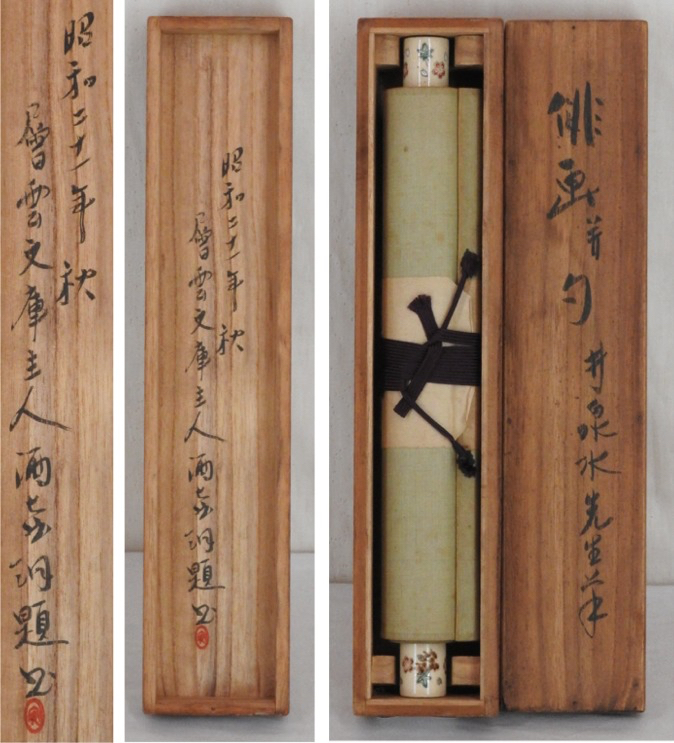 昭和二十一年秋
層雲文庫主人 酒壺洞題
昭和二十一年秋
層雲文庫主人 酒壺洞題
俳画并句
井泉水先生筆